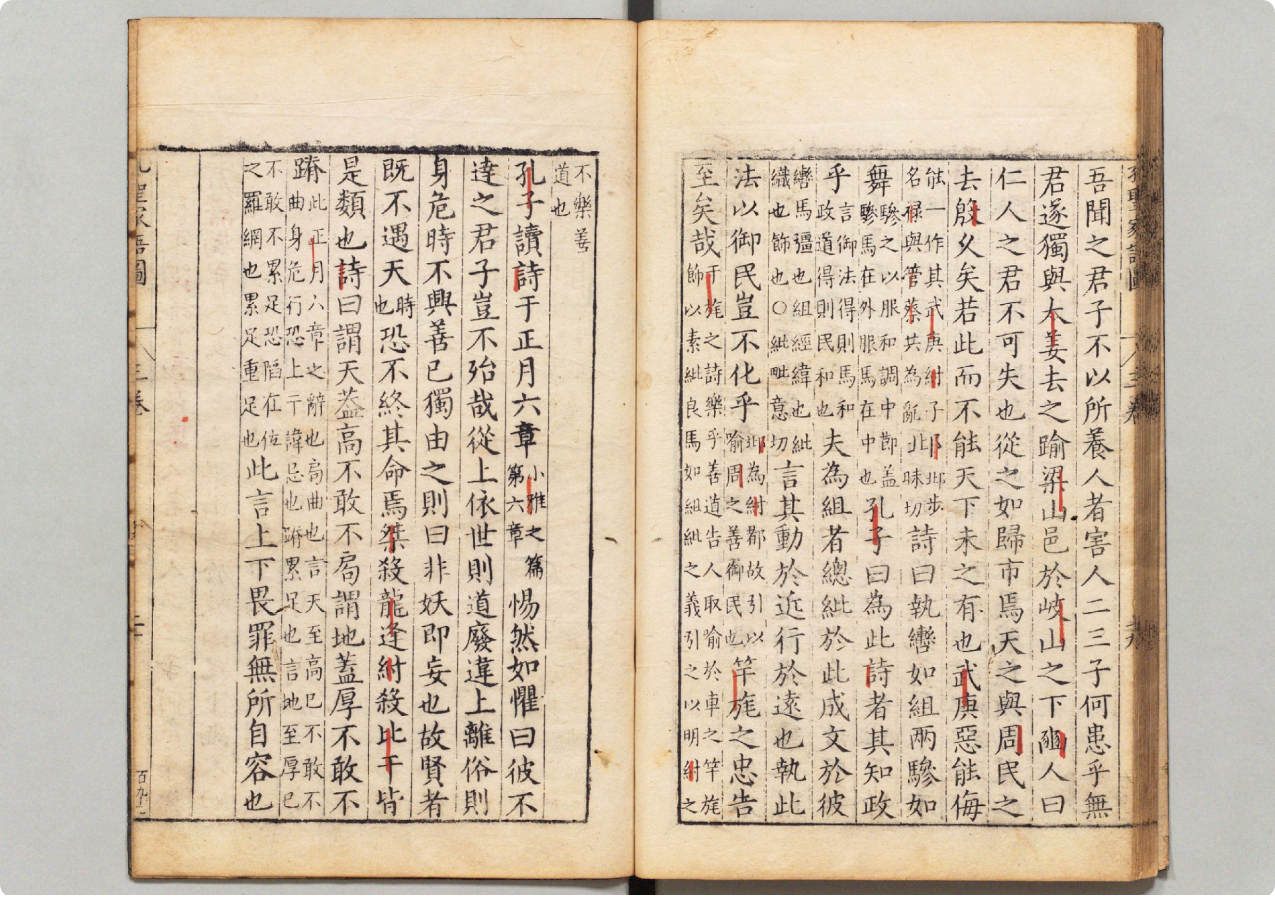 吾聞之君子不以所養人者害人二三子何患乎無
君遂獨與大姜去之踰梁山邑於岐山之下豳人曰
仁人之君不可失也從之如歸市焉天之與周民之
去殷久矣若此而不能天下未之有也武庚惡能侮
能一作其武庚紂子邶邶步
名祿與管蔡共為亂北昧切
詩曰執轡如組兩驂如
舞
驂之以服和調中節蓋
驂馬在外服馬在中也
孔子曰為此詩者其知政
乎
言御法得則馬和
政道得則民和也
夫為組者總紕於此成文於彼
轡馬疆也組經緯也紕
織也飾也○紕毗意切
言其動於近行於遠也執此
法以御民豈不化乎
邶為紂都故引以
喻周之善御民也
竿旄之忠告
至矣哉
于旄之詩樂乎善道告人取喻於車之竿旄
飾以素紕良馬如組紕之義引之以明紂之
不樂善
道也
孔子讀詩于正月六章
小雅之篇
第六章
惕然如懼曰彼不
達之君子豈不殆哉從上依世則道廢違上離俗則
身危時不興善已獨由之則曰非妖即妄也故賢者
既不遇天
時
也
恐不終其命焉桀殺龍逢紂殺比干皆
是類也詩曰謂天蓋高不敢不局謂地蓋厚不敢不
蹐
此正月六章之辭也局曲也言天至高已不敢不
曲身危行恐上干諱忌也蹐累足也言地至厚已
不敢不累足恐陷在位
之羅網也累足重足也
此言上下畏罪無所自容也